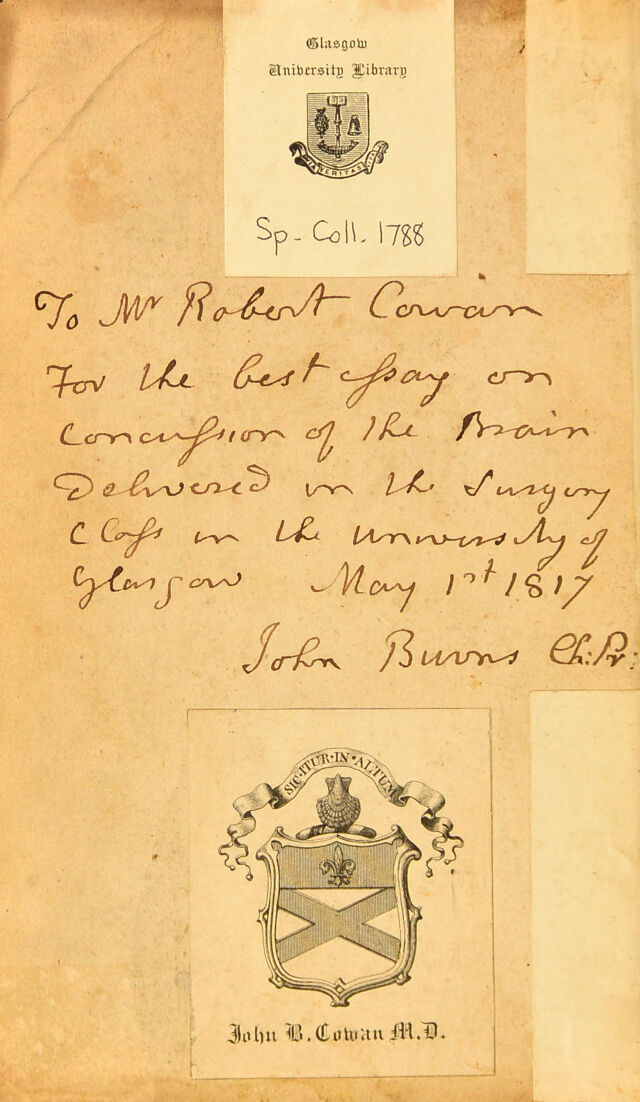 Glasgow
University Library
VIA VERITAS VITA
Sp. Coll. 1788
To Mr Robert Cowan
For the best eſsay on
Concuſsion of the Brain
Delivered in the Surgery
Claſs in the University of
Glasgow May 1st 1817
John Burns Ch: Pr:
SIC·ITUR·IN·ALTUM
John B. Cowan M.D.